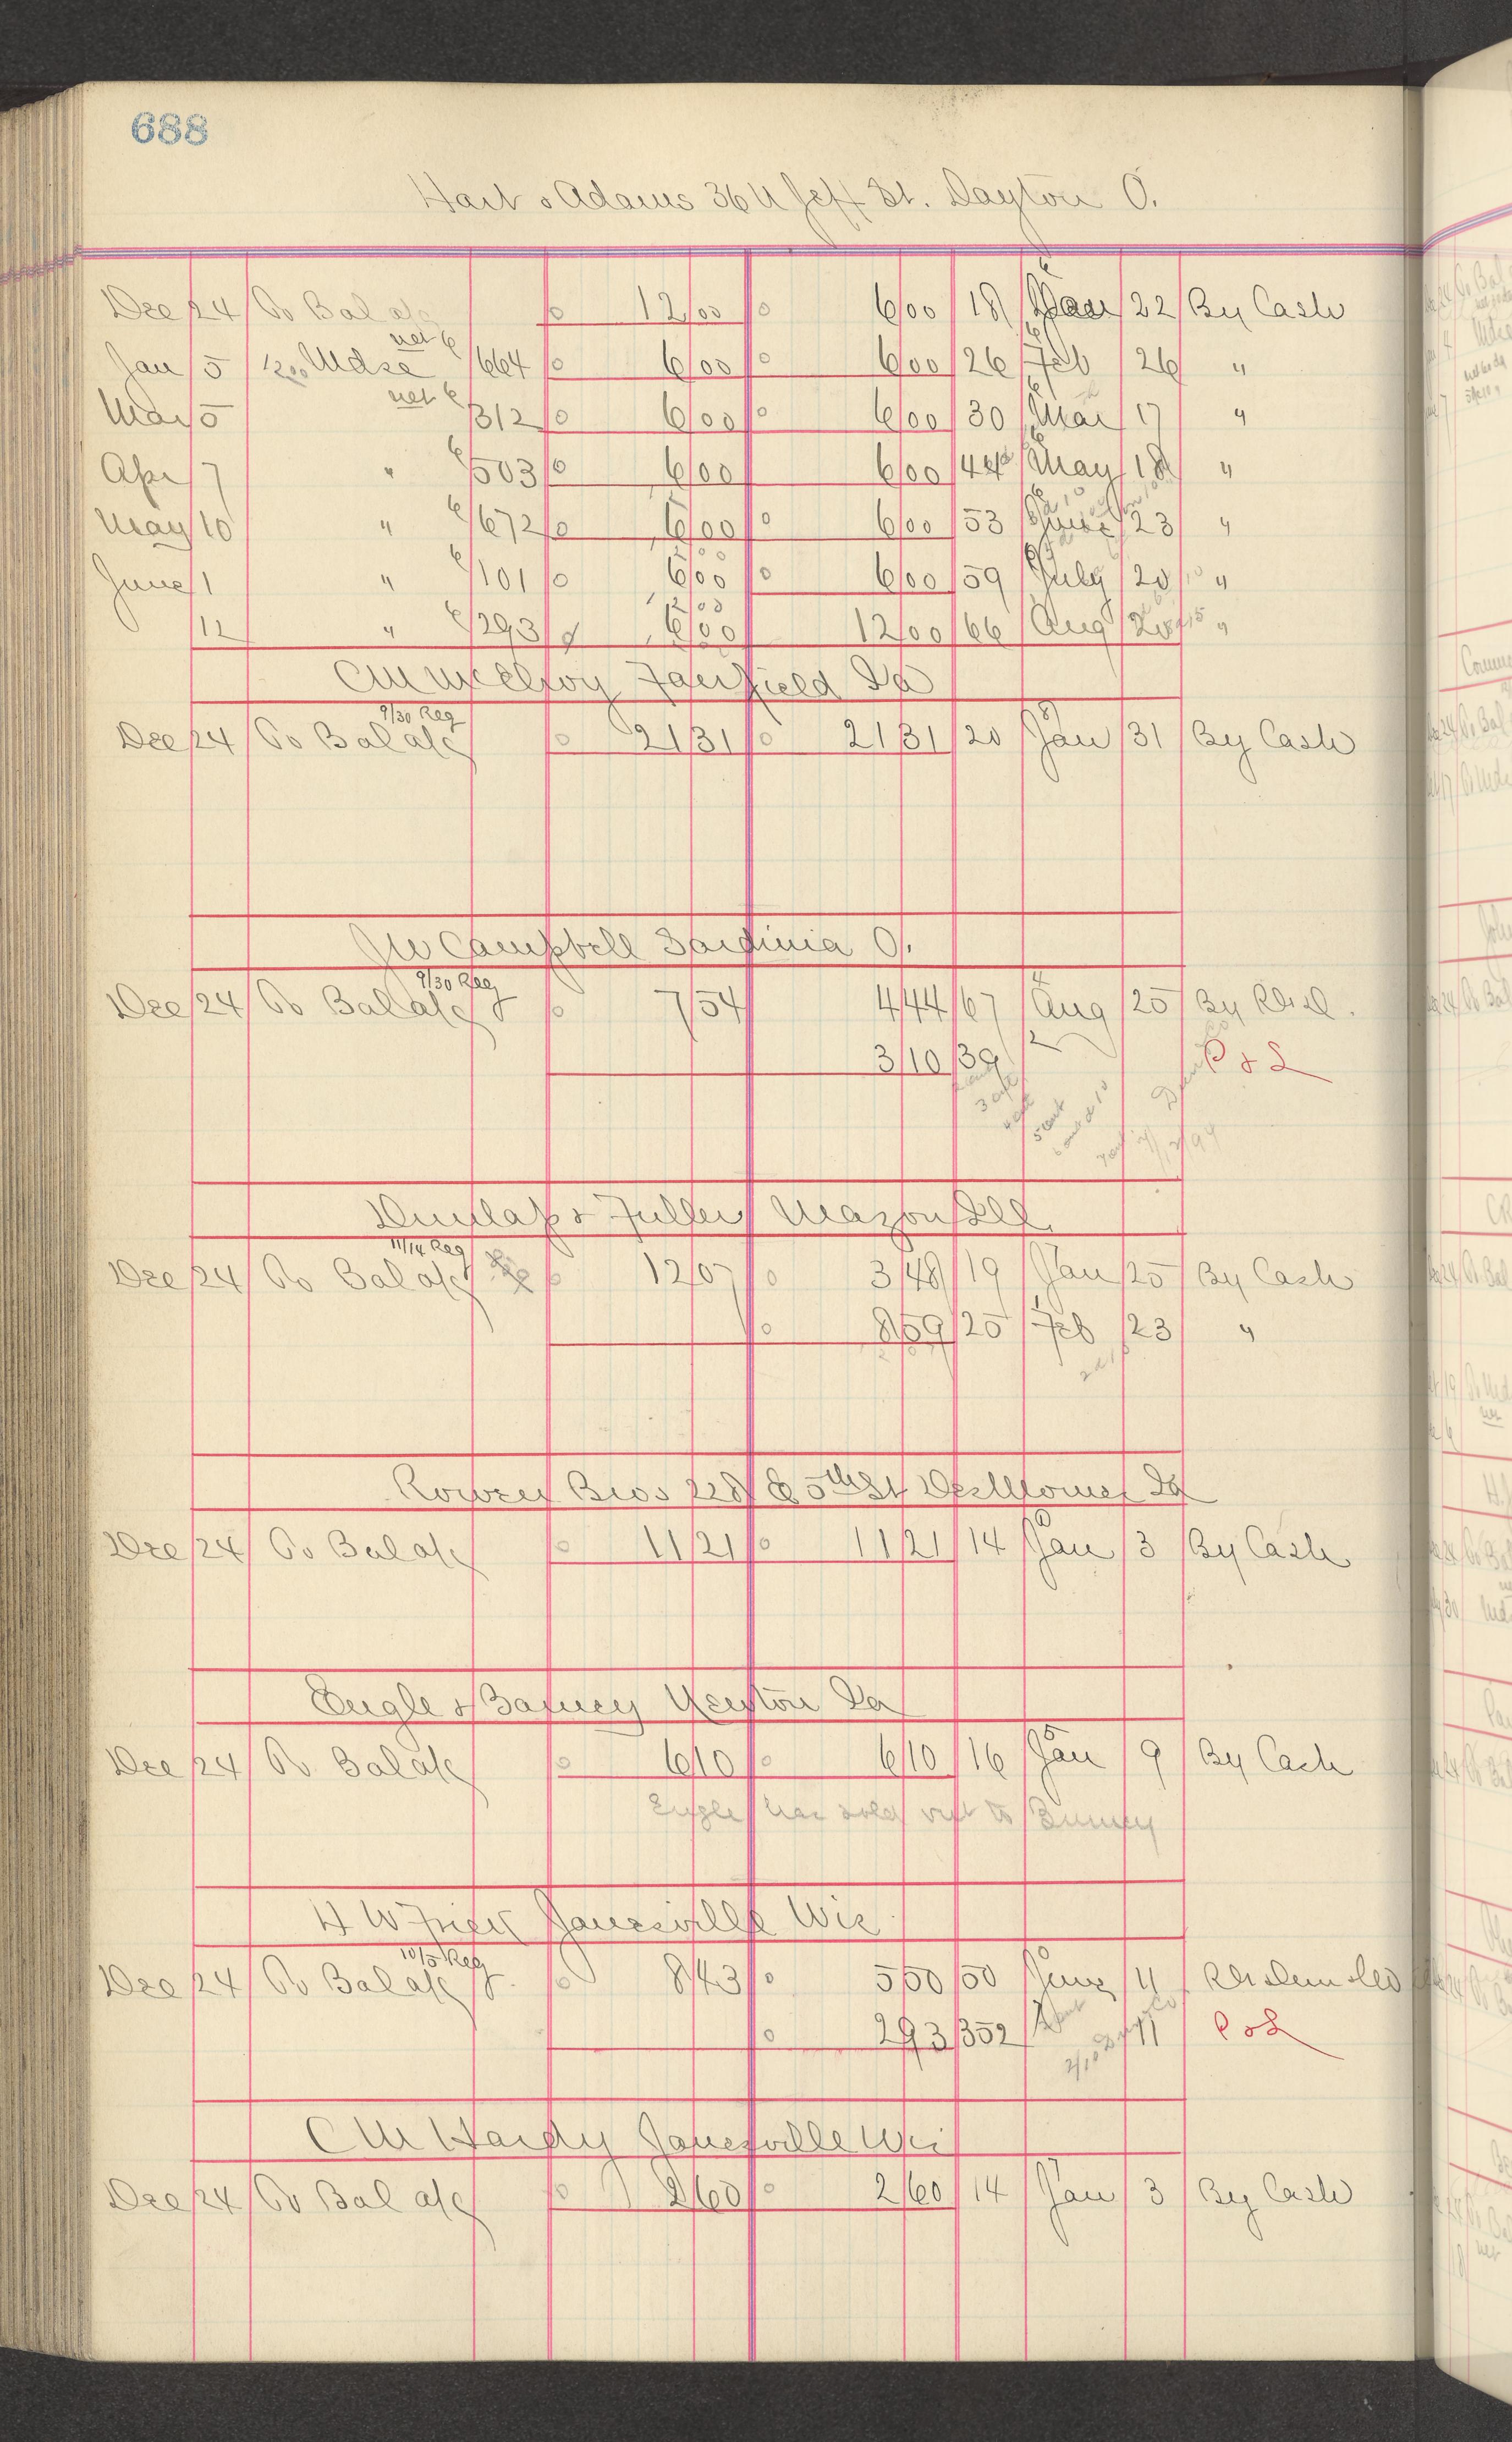 688
Hart & Adams 36 N Jeff St. Dayton O.
Dec 24 To Bal a/c 12 00 6 00 18 Jan 22 By Cash
net 6
Jan 5 Mdse 664 6 00 6 00 26 Feb 26 "
net 6
Mar 5 312 6 00 6 00 30 Mar 17 "
Apr 7 " 6 503 6 00 6 00 44 May 18 "
May 10 " 6 672 6 00 6 00 53 June 23 "
June 1 " 6 101 6 00 6 00 59 July 20 "
12 00
12 " 6 293 6 00 12 00 66 Aug "
CM McElroy Fairfield Ia
9/30 Reg
Dec 24 To Bal a/c 21 31 21 31 20 Jan 31 By Cash
JW Campbell Sardinia O.
9/30 Reg
Dec 24 To Bal a/c 7 54 4 44 67 Aug 25 By
3 10 39 P & L
Dunlap & Fuller Mazon Ill.
11/14 Reg
Dec 24 To Bal a/c 12 07 3 48 19 Jan 25 By Cash
8 59 25 Feb 23 "
Bros 228 E 5th St Des Moines Ia
Dec 24 To Bal a/c 11 21 11 21 14 Jan 3 By Cash
Engle & Newton Ia
Dec 24 To Bal a/c 6 10 6 10 16 Jan 9 By Cash
Engle has sold out to
H W Janesville Wis
10/5 Reg
Dec 24 To Bal a/c 8 43 5 50 50 June 11
2 93 352 11 P & L
CM Hardy Janesville Wis
Dec 24 To Bal a/c 2 60 2 60 14 Jan 3 By Cash